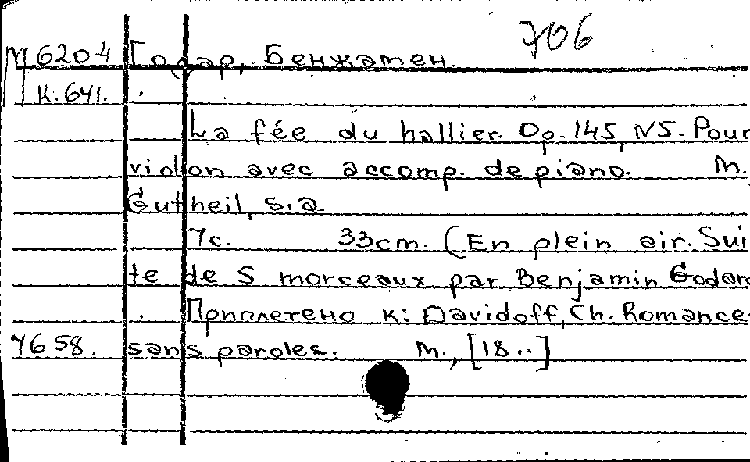 706
М6204 Годар, Бенжамен.
К.641.
La fée du hallier. Op. 145, N5. Pour
violon avec accomp. de piano. M.
Gutheil, s.a.
7с. 33cm. (En plein air. Sui
te de 5 morceaux par Benjamin Godard
Приплетено к: Davidoff, Ch. Romance
7658. sans paroles. M., [18..]